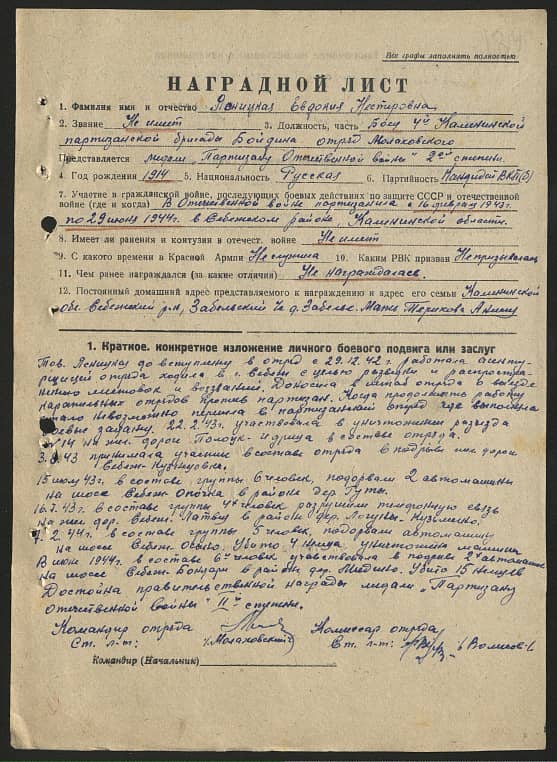 Все графы заполнять полностью
НАГРАДНОЙ ЛИСТ
1. Фамилия имя и отчество Леницкая Евдокия Нестировна
2. Звание Не имеет 3. Должность, часть Боец 4й Калининской
партизанской бригады Бойдина отряд Молоковского
Представляется медали "Партизану Отечественной войны" 2ой степени.
4. Год рождения 1914 5. Национальность Русская 6. Партийность Кандидат ВКП(б)
7. Участие в гражданской войне, последующих боевых действиях по защите СССР и отечественной
войне (где и когда) В Отечественной войне партизанила с 16 февраля 1943г.
по 29 июня 1944г. в Себежском районе, Калининской области.
8. Имеет ли ранения и контузии в отечест. войне Не имеет
9. С какого времени в Красной Армии Не служила 10. Каким РВК призван Не призывалась
11. Чем ранее награждался (за какие отличия) Не награждалась.
12. Постоянный домашний адрес представляемого к награждению и адрес его семьи Калининской
обл. Себежский р-н, Забельский с/с д. Забелье. Мать
1. Краткое, конкретное изложение личного боевого подвига или заслуг
Тов. Леницкая до вступления в отряд с 29.12.42г. работала агенту-
рщицей отряда ходила в г. Себеж с целью разведки и распростра-
нению листовок и воззваний. Доносила в штаб отряда о выезде
карательных отрядов против партизан. Когда продолжать работу
стало невозможно перешла в партизанский отряд где выполняла
боевые задания. 22.2.43г. участвовала в уничтожении разъезда
№ 14 на жел. дороги Полоцк-Идрица в составе отряда.
3. 43 принимала участие в составе отряда в подрыве жел. дороги
Себеж
15 июля 43г. в составе группы 6 человек, подорвали 2 автомашины
на шоссе Себеж Опочка в районе дер. Гуты.
16.7.43г. в составе группы 4х человек разрушили телефонную связь
на жел. дор. Себеж. Латвия в районе дер.
7.2.44г. в составе группы 5 человек, подорвали автомашину
на шоссе Себеж Осыно. Убито 4 немца, уничтожена машина
В июне 1944г. в составе 6ти человек участвовала в подрыве 2 автомашин
на шоссе Себеж в районе дер. Убито 15 немцев
Достойна правительственной награды медали "Партизану
Отечественной войны" IIй степени.
Командир отряда Комиссар отряда
Ст. л-т: /Молоковский/ Ст. л-т:
Командир (Начальник)